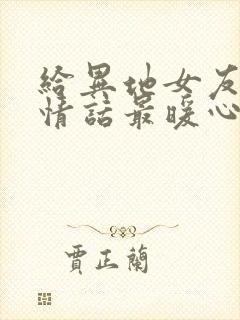 給異地女友
情話最暖心
賈正蘭